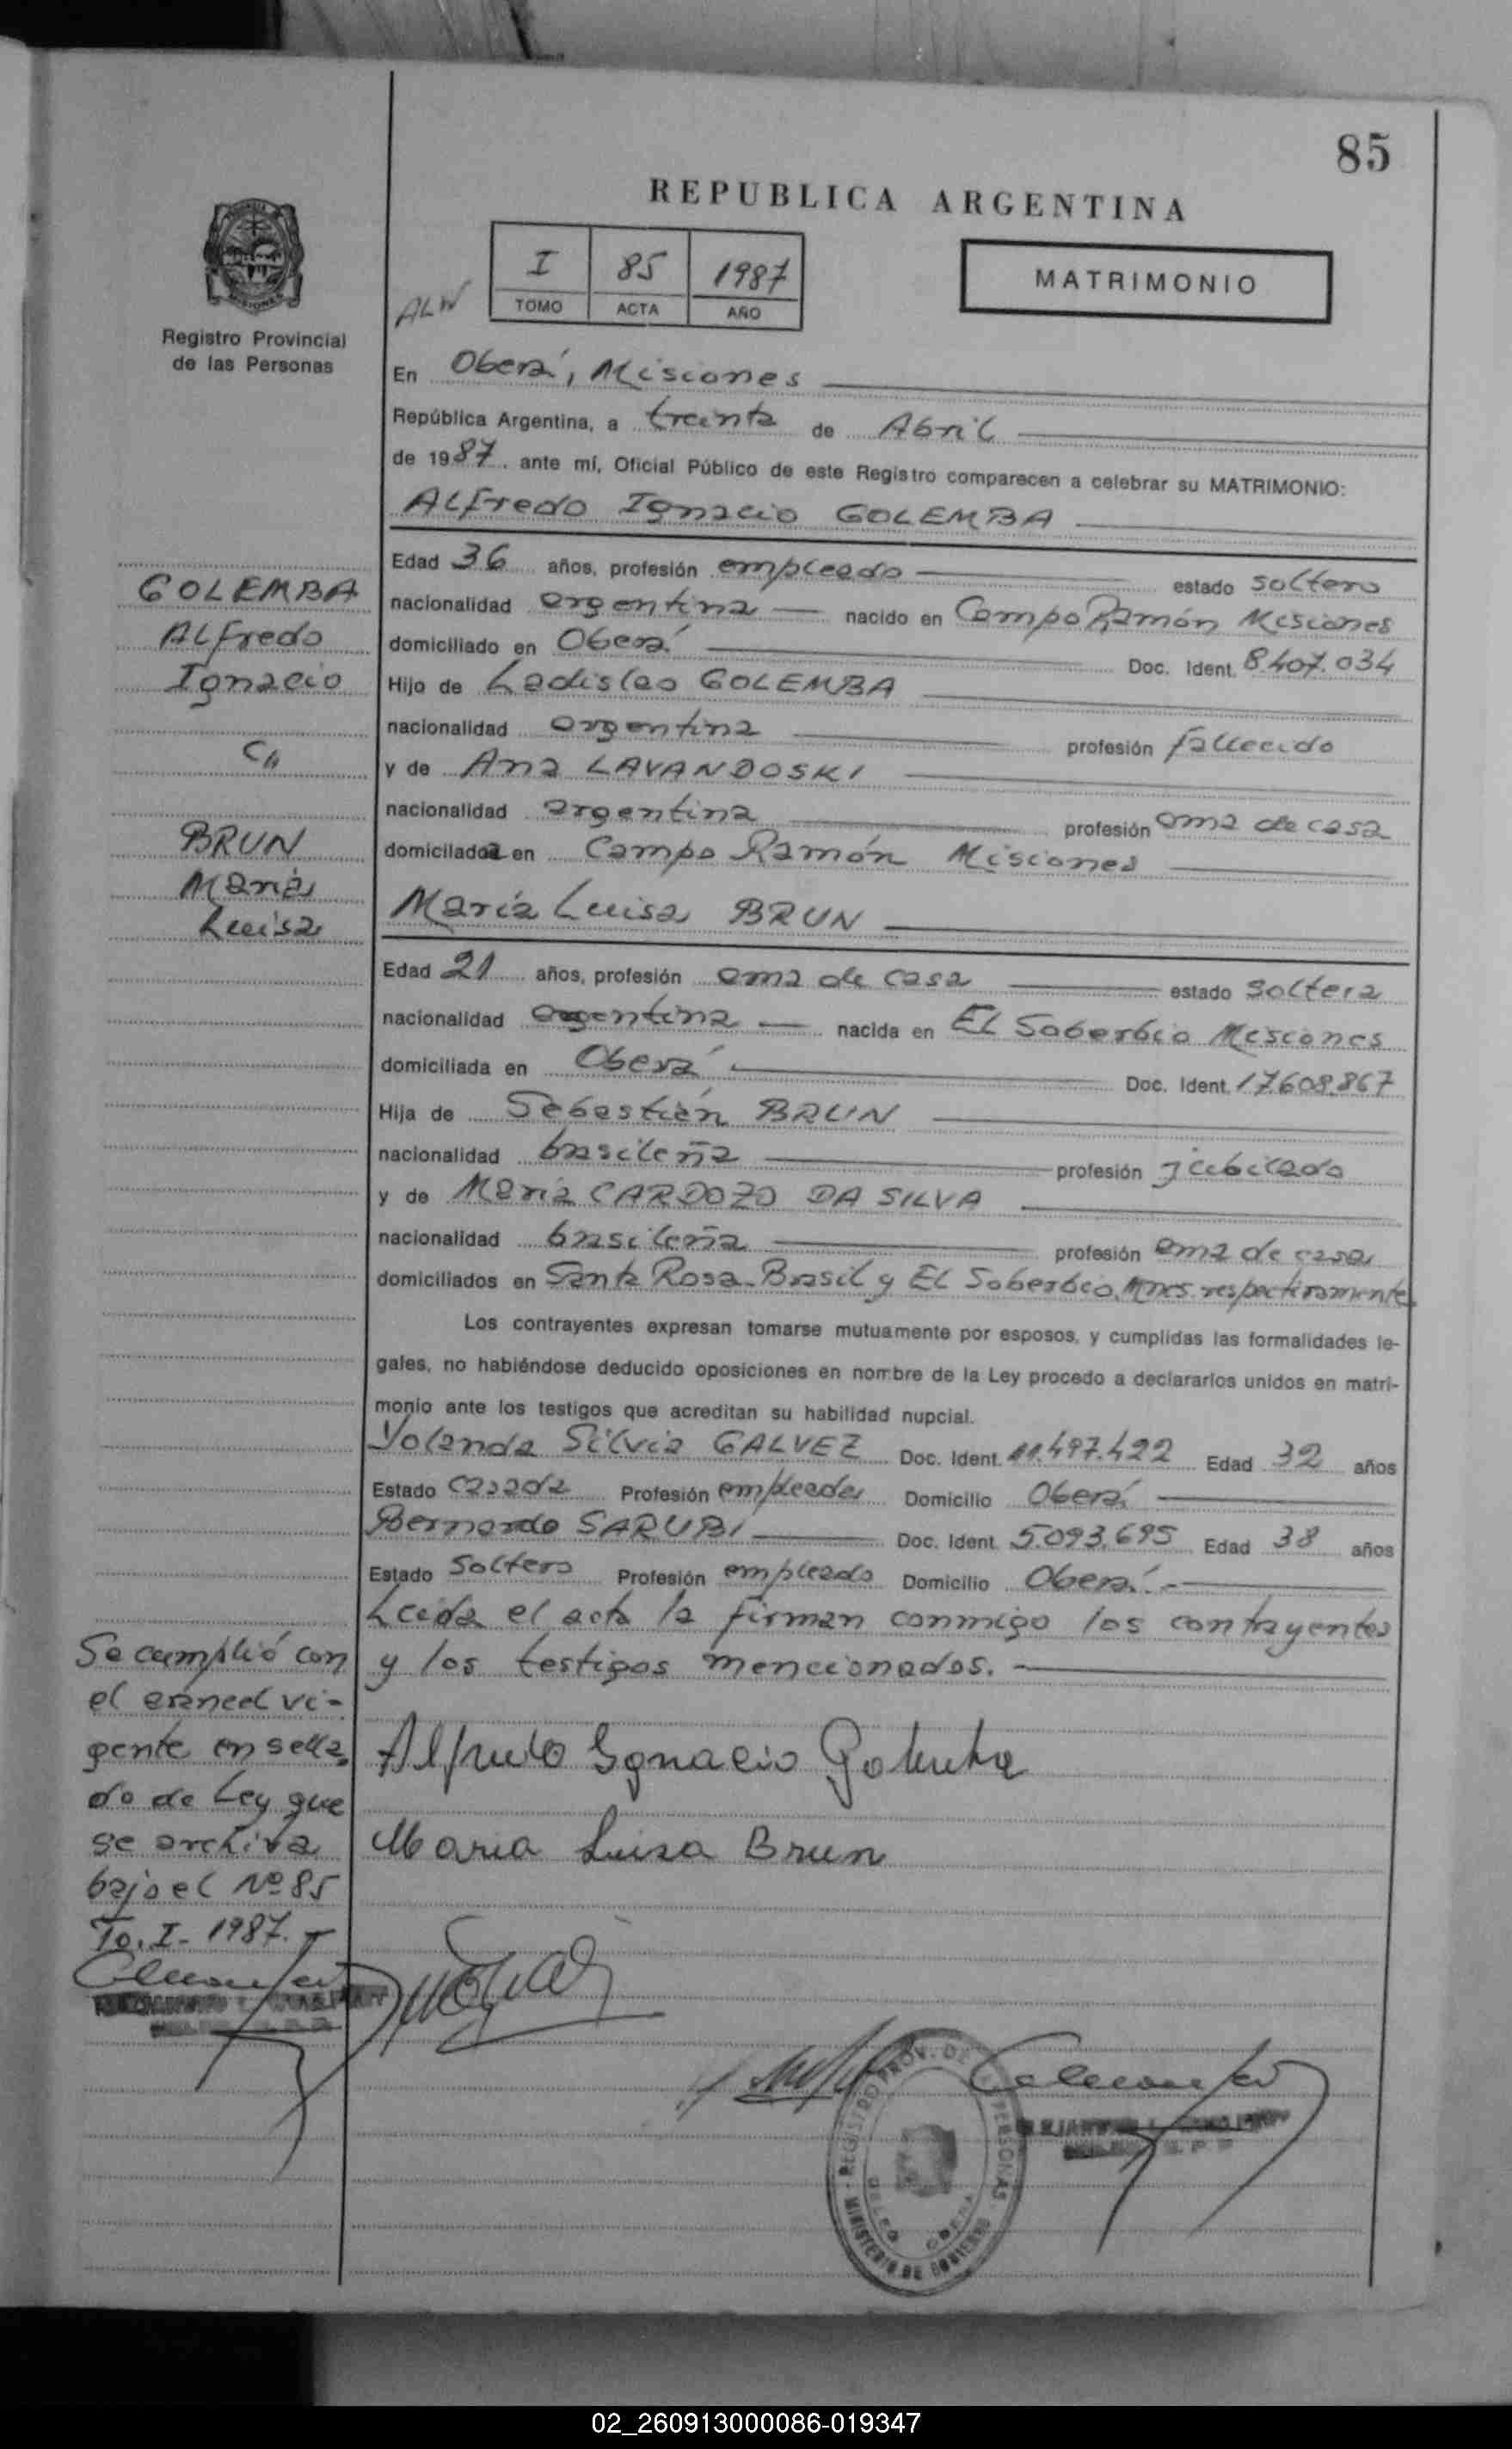 85
REPUBLICA ARGENTINA
I 85 1987
TOMO ACTA AÑO
MATRIMONIO
ALW
Registro Provincial
de las Personas
En Oberá, Misiones
República Argentina, a treinta de Abril
de 1987. ante mí, Oficial Público de este Registro comparecen a celebrar su MATRIMONIO:
Alfredo Ignacio GOLEMBA
Edad 36 años, profesión empleado estado soltero
nacionalidad argentina nacido en Campo Ramón Misiones
domiciliado en Oberá Doc. Ident. 8.407.034
Hijo de Ladislao GOLEMBA
nacionalidad argentina profesión fallecido
y de Ana LAVANDOSKI
nacionalidad argentina profesión ama de casa
domicilada en Campo Ramón Misiones
GOLEMBA
Alfredo
Ignacio
BRUN
María
Luisa
María Luisa BRUN
Edad 21 años, profesión ama de casa estado soltera
nacionalidad argentina nacida en El Soberbio Misiones
domiciliada en Oberá Doc. Ident. 17.608.867
Hija de Sebastián BRUN
nacionalidad brasileña profesión jubilado
y de María CARDOZO DA SILVA
nacionalidad brasileña profesión ama de casa
domiciliados en Santa Rosa-Brasil y El Soberbio, Mnes. respectivamente.
Los contrayentes expresan tomarse mutuamente por esposos, y cumplidas las formalidades le-
gales, no habiéndose deducido oposiciones en nombre de la Ley procedo a declararlos unidos en matri-
monio ante los testigos que acreditan su habilidad nupcial.
Yolanda Silvia GALVEZ Doc. Ident. 11.497.422 Edad 32 años
Estado casada Profesión empleada Domicilio Oberá
Bernardo SARUBI Doc. Ident. 5.093.695 Edad 38 años
Estado soltero Profesión empleado Domicilio Oberá.
Leída el acta la firman conmigo los contrayentes
y los testigos mencionados.
Se cumplió con
el arancel vi-
gente en sella
do de Ley que
se archiva
bajo el Nº 85
To. I- 1987.
Alfredo Ignacio Golemba
Maria Luisa Brun
REGISTRO PROV. DE PERSONAS
MINISTERIO DE GOBIERNO
DELEG OBERA
02_260913000086-019347